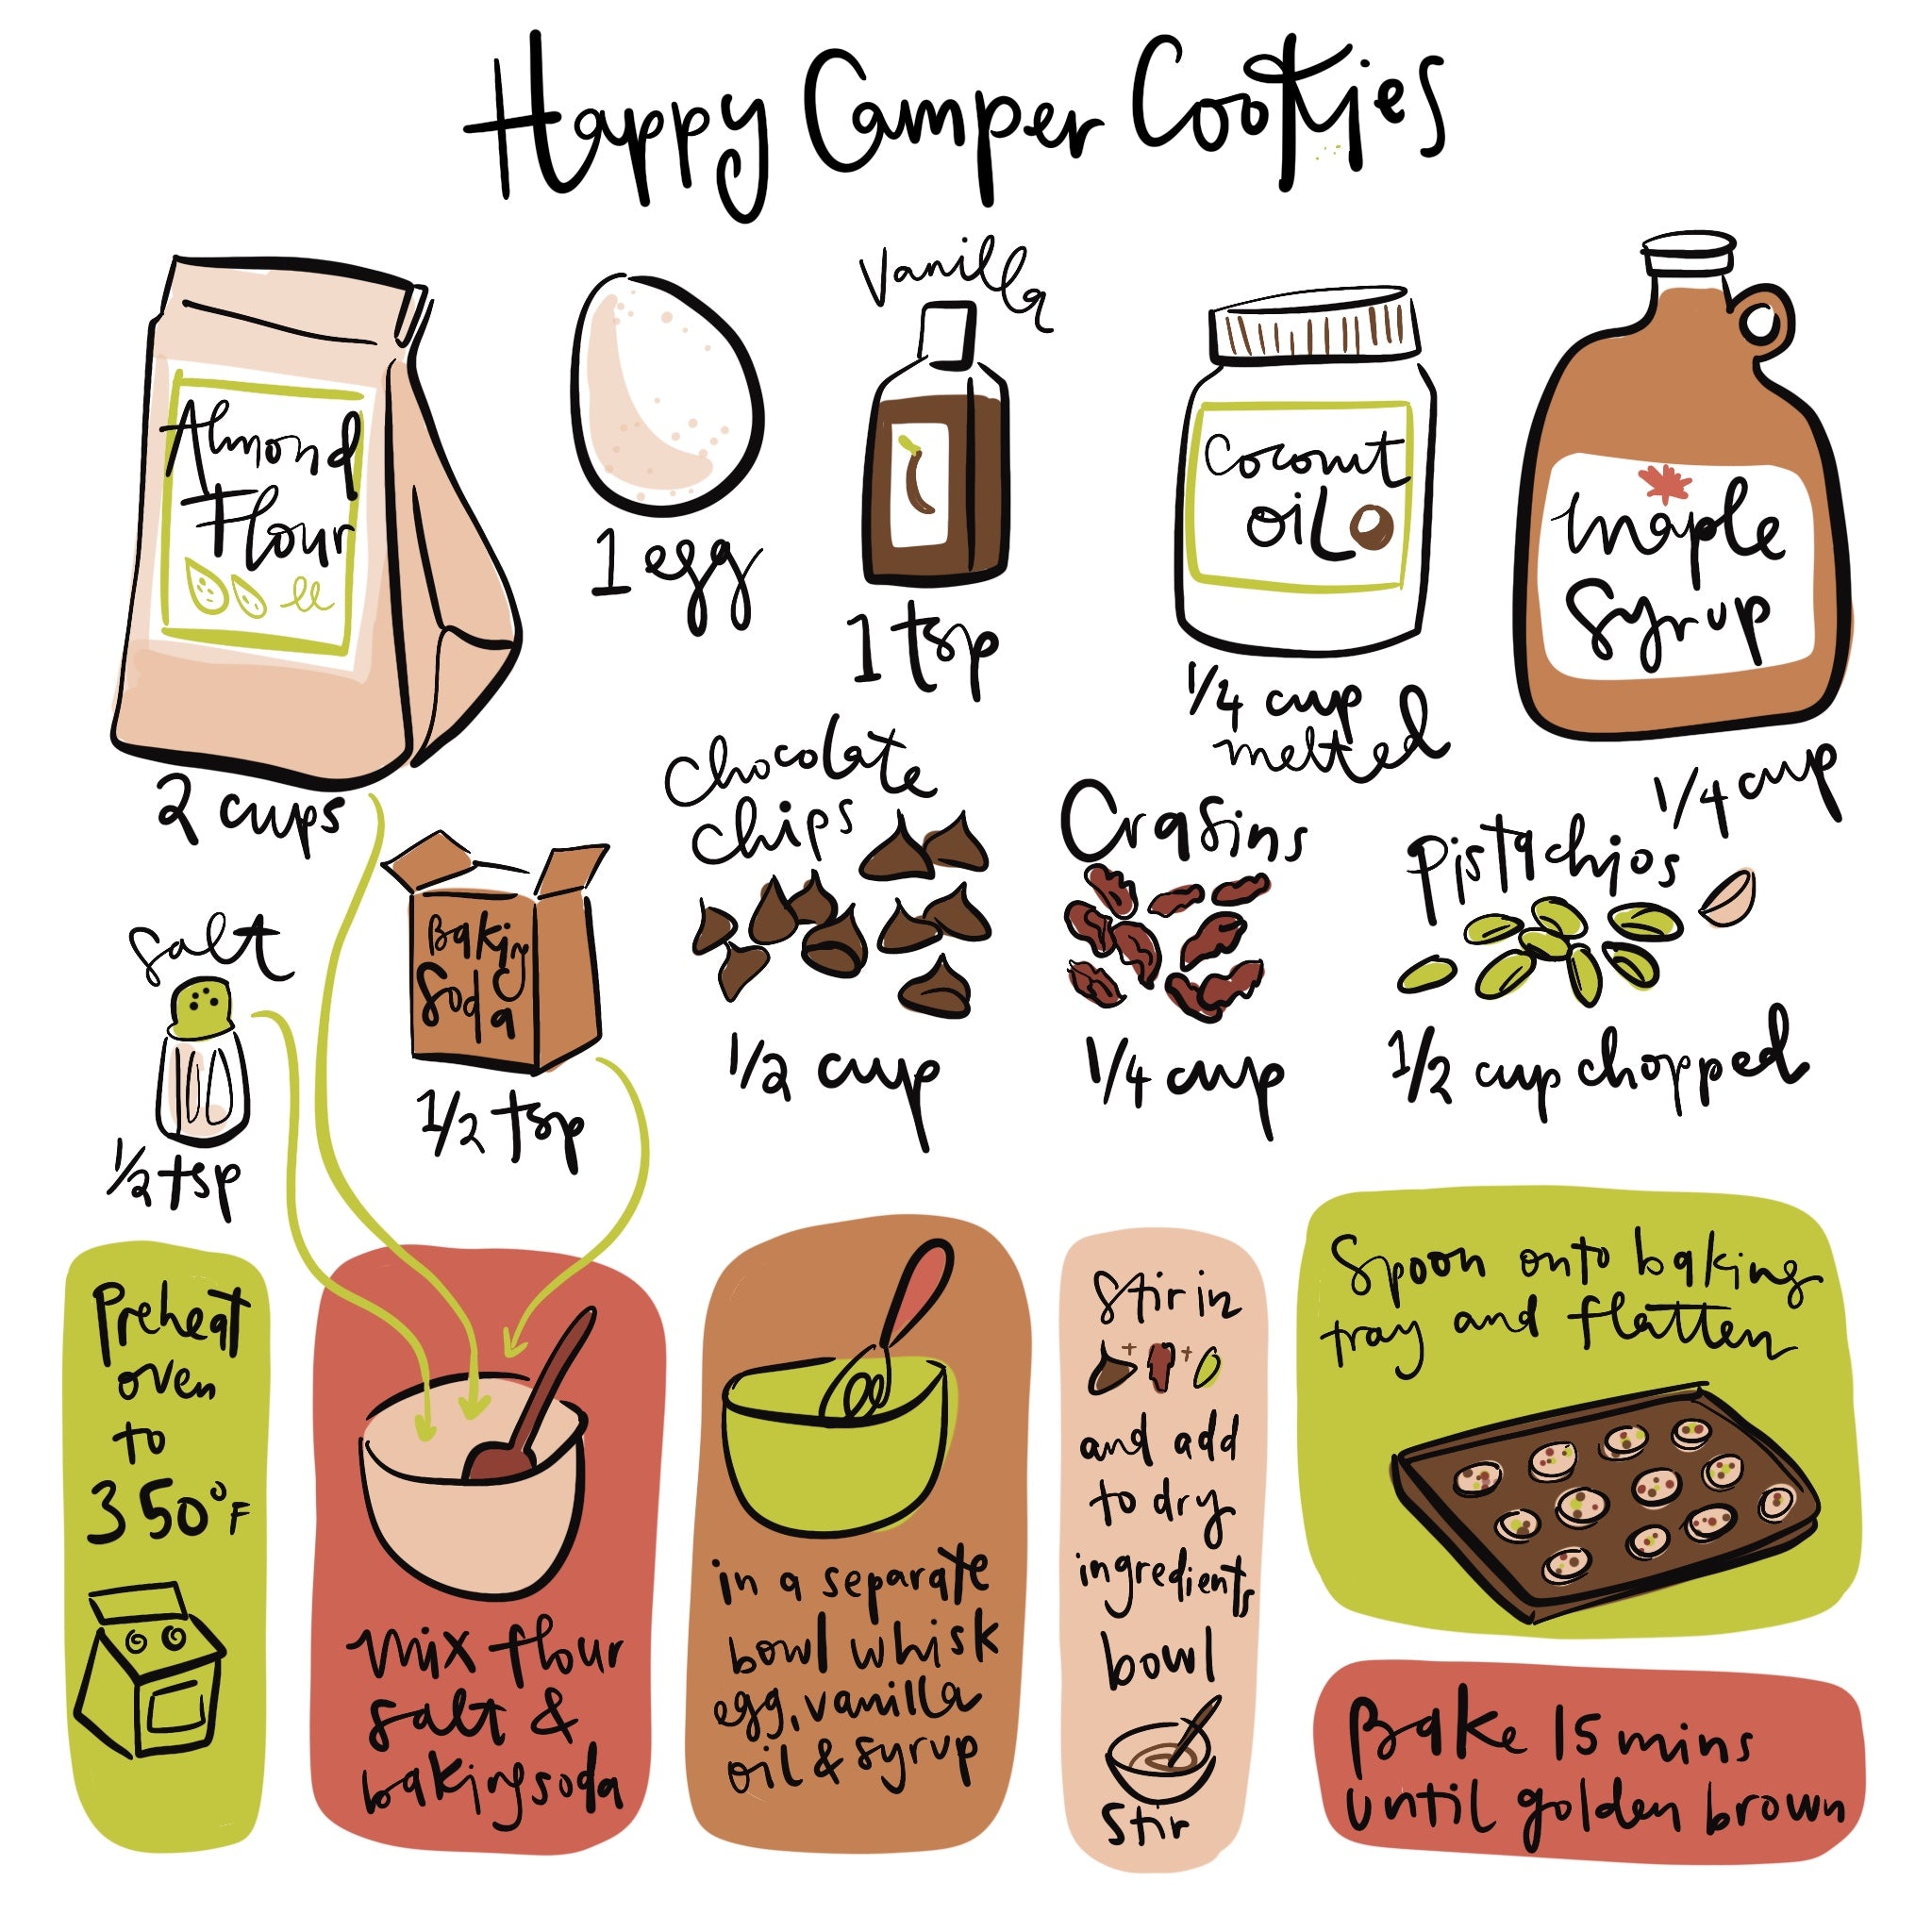 Happy Camper Cookies
Almond
Flour
2 cups
1 egg
Vanilla
1 tsp
Coconut
oil
1/4 cup
melted
Maple
Syrup
1/4 cup
Salt
1/2 tsp
Baking
Soda
1/2 tsp
Chocolate
Chips
1/2 cup
Craisins
1/4 cup
Pistachios
1/2 cup chopped
Preheat
oven
to
350°F
Mix flour
salt &
baking soda
in a separate
bowl whisk
egg, vanilla
oil & syrup
Stir in
+ +
and add
to dry
ingredients
bowl
Stir
Spoon onto baking
tray and flatten
Bake 15 mins
until golden brown